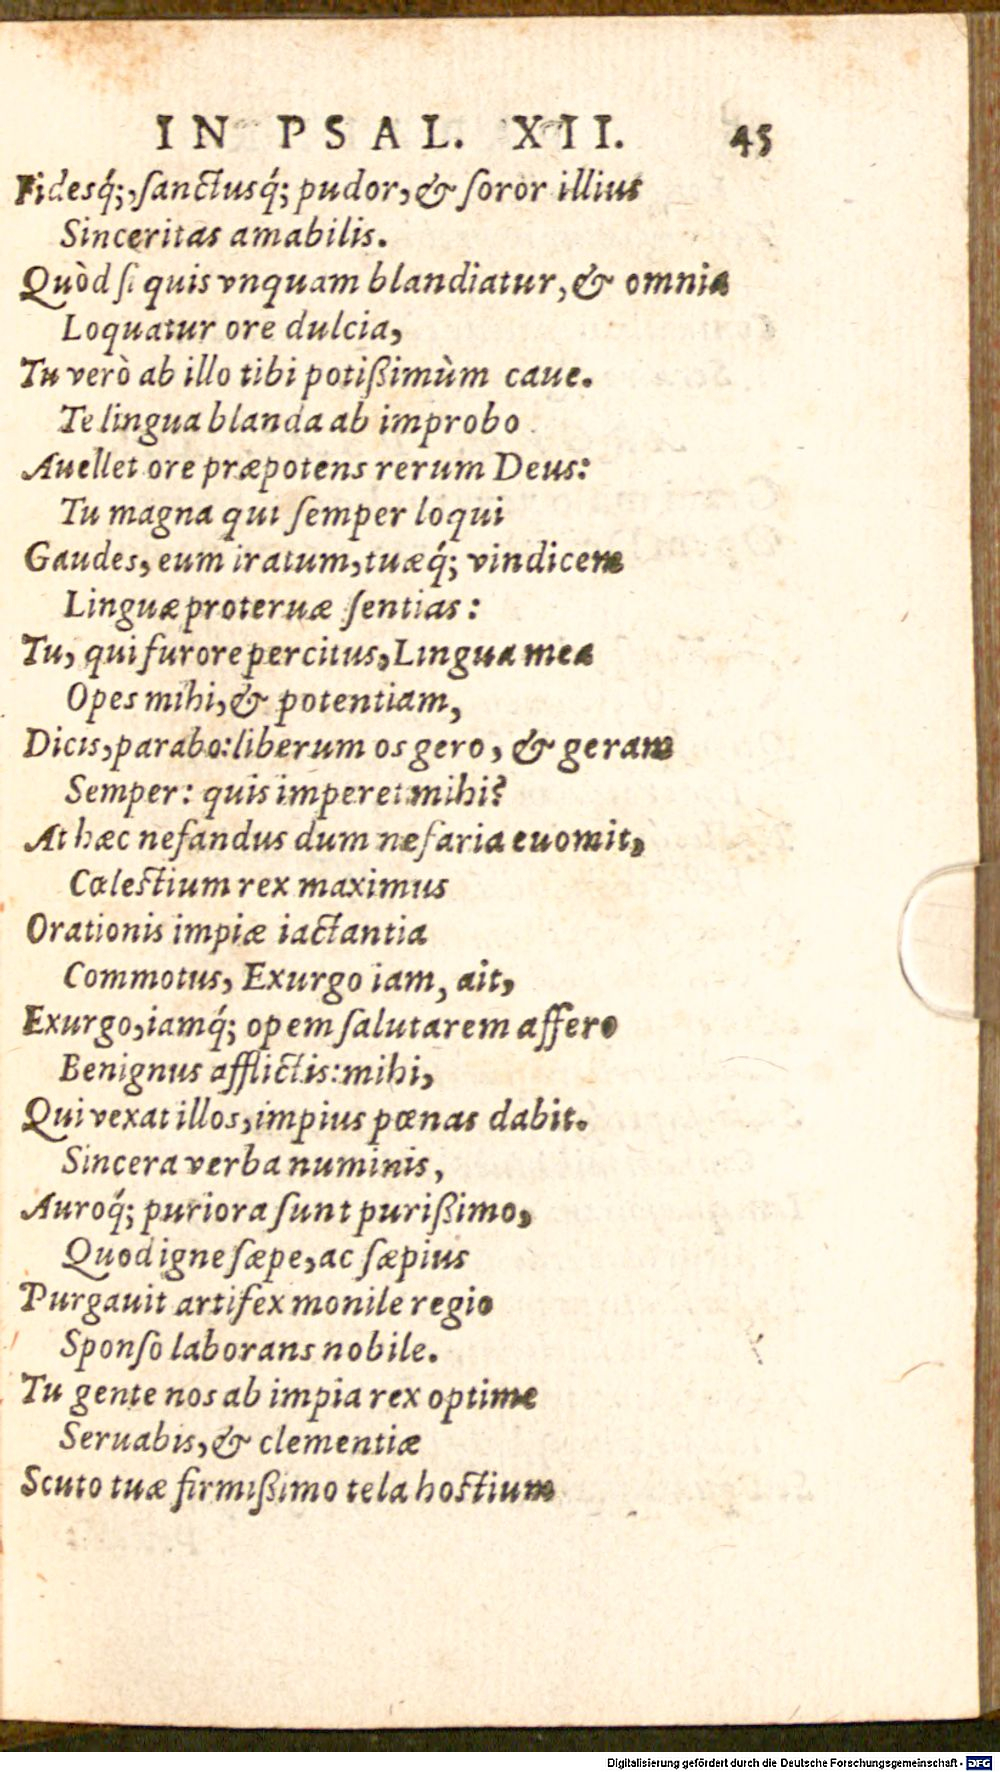 IN PSAL. XII. 45
Fidesq́;, ſanctusq́; pudor, & ſoror illius
Sinceritas amabilis.
Quòd ſi quis vnquam blandiatur, & omnia
Loquatur ore dulcia,
Tu verò ab illo tibi potißimùm caue.
Te lingua blanda ab improbo
Auellet ore præpotens rerum Deus:
Tu magna qui ſemper loqui
Gaudes, eum iratum, tuæq́; vindicem
Linguæ proteruæ ſentias:
Tu, qui furore percitus, Lingua mea
Opes mihi, & potentiam,
Dicis, parabo: liberum os gero, & geram
Semper: quis imperet mihi?
At hæc nefandus dum nefaria euomit,
Cœleſtium rex maximus
Orationis impiæ iactantia
Commotus, Exurgo iam, ait,
Exurgo, iamq́; opem ſalutarem affero
Benignus afflictis: mihi,
Qui vexat illos, impius pœnas dabit.
Sincera verba numinis,
Auroq́; puriora ſunt purißimo,
Quod igne ſæpe, ac ſæpius
Purgauit artifex monile regio
Sponſo laborans nobile.
Tu gente nos ab impia rex optime
Seruabis, & clementiæ
Scuto tuæ firmißimo tela hoſtium
Digitalisierung gefördert durch die Deutsche Forschungsgemeinschaft - DFG